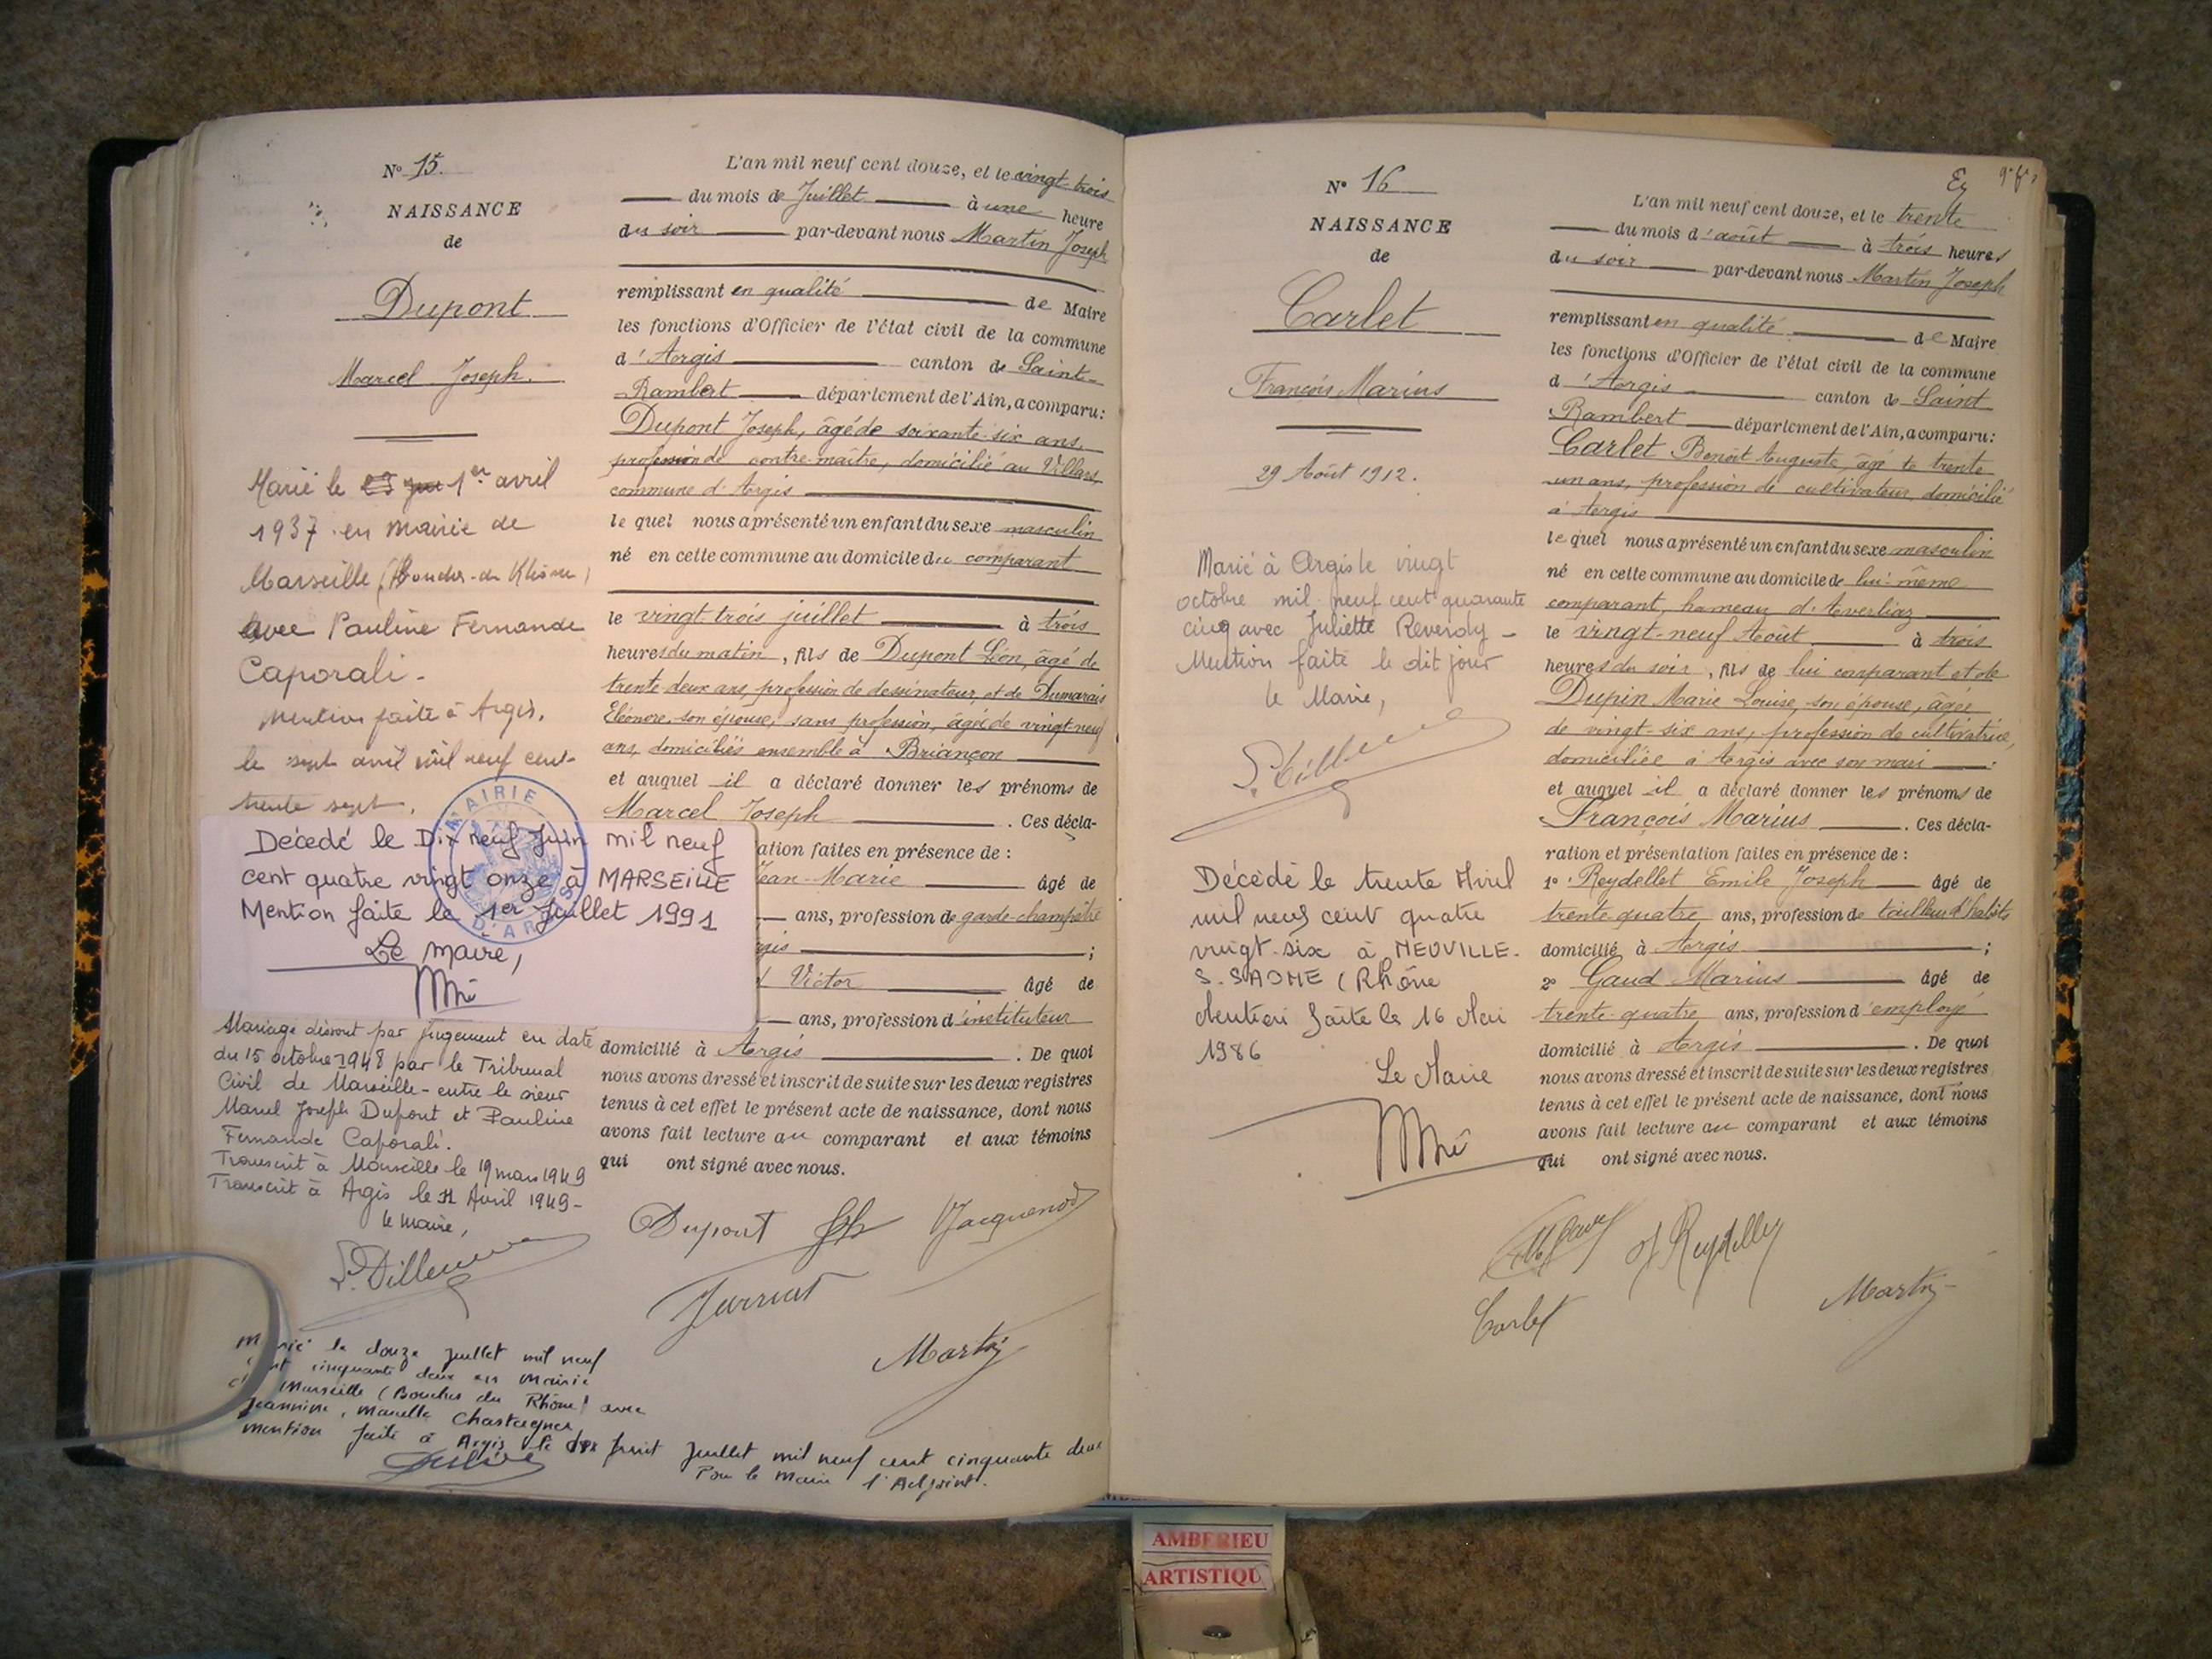 N° 15.
NAISSANCE
de
Dupont
Marcel Joseph.
Marié le 1er avril
1937 en mairie de
Marseille (Bouches-du-Rhône)
avec Pauline Fernande
Caporali -
Mention faite à Argis,
le sept avril mil neuf cent
trente sept.
MAIRIE
D'ARGIS
Décédé le Dix neuf Juin mil neuf
cent quatre vingt onze à MARSEILLE
Mention faite le 1er Juillet 1991
Le maire,
Mariage dissout par jugement en date
du 15 octobre 1948 par le Tribunal
Civil de Marseille - entre le sieur
Marcel Joseph Dupont et Pauline
Fernande Caporali.
Transcrit à Marseille le 19 mars 1949
Transcrit à Argis le 11 Avril 1949 -
le maire,
Marié le douze juillet mil neuf
cent cinquante deux en Mairie
de Marseille (Bouches du Rhône) avec
Jeannine, Marcelle Chastagner
mention faite à Argis le dix huit juillet mil neuf cent cinquante deux
Pour le Maire l'Adjoint.
L'an mil neuf cent douze, et le vingt-trois
du mois de Juillet à une heure
du soir par-devant nous Martin Joseph
remplissant en qualité de Maire
les fonctions d'Officier de l'état civil de la commune
d'Argis canton de Saint-
Rambert département de l'Ain, a comparu:
Dupont Joseph, âgé de soixante-six ans,
profession de contre-maître, domicilié au Villard,
commune d'Argis
le quel nous a présenté un enfant du sexe masculin
né en cette commune au domicile du comparant
le vingt-trois juillet à trois
heures du matin, fils de Dupont Léon, âgé de
trente deux ans, profession de dessinateur, et de Dumarais
Eléonore, son épouse, sans profession, âgée de vingt-neuf
ans, domiciliés ensemble à Briançon
et auquel il a déclaré donner les prénoms de
Marcel Joseph. Ces décla-
ation faites en présence de :
Jean-Marie âgé de
ans, profession de garde-champêtre
gis ;
Victor âgé de
ans, profession d'instituteur
domicilié à Argis. De quoi
nous avons dressé et inscrit de suite sur les deux registres
tenus à cet effet le présent acte de naissance, dont nous
avons fait lecture au comparant et aux témoins
qui ont signé avec nous.
Dupont Jh Jacquenod
Martin
N° 16
NAISSANCE
de
Carlet
François Marius
29 Août 1912.
Marié à Argis le vingt
octobre mil neuf cent quarante
cinq avec Juliette Reverdy -
Mention faite le dit jour
le Maire,
Décédé le trente Avril
mil neuf cent quatre
vingt-six à NEUVILLE-
S. SAONE (Rhône
Mention faite le 16 Mai
1986
Le Maire
L'an mil neuf cent douze, et le trente
du mois d'août à trois heures
du soir par-devant nous Martin Joseph
remplissant en qualité de Maire
les fonctions d'Officier de l'état civil de la commune
d'Argis canton de Saint
Rambert département de l'Ain, a comparu:
Carlet Benoît Auguste, âgé de trente
un ans, profession de cultivateur, domicilié
à Argis
le quel nous a présenté un enfant du sexe masculin
né en cette commune au domicile de lui-même
comparant, hameau d'Averliaz
le vingt-neuf Août à trois
heures du soir, fils de lui comparant et de
Dupin Marie Louise, son épouse, âgée
de vingt-six ans, profession de cultivatrice,
domiciliée à Argis avec son mari.
et auquel il a déclaré donner les prénoms de
François Marius. Ces décla-
ration et présentation faites en présence de :
1° Reydellet Emile Joseph âgé de
trente quatre ans, profession de tailleur d'habits
domicilié à Argis ;
2° Gaud Marius âgé de
trente-quatre ans, profession d'employé
domicilié à Argis. De quoi
nous avons dressé et inscrit de suite sur les deux registres
tenus à cet effet le présent acte de naissance, dont nous
avons fait lecture au comparant et aux témoins
qui ont signé avec nous.
Carlet
Martin
AMBERIEU
ARTISTIQU